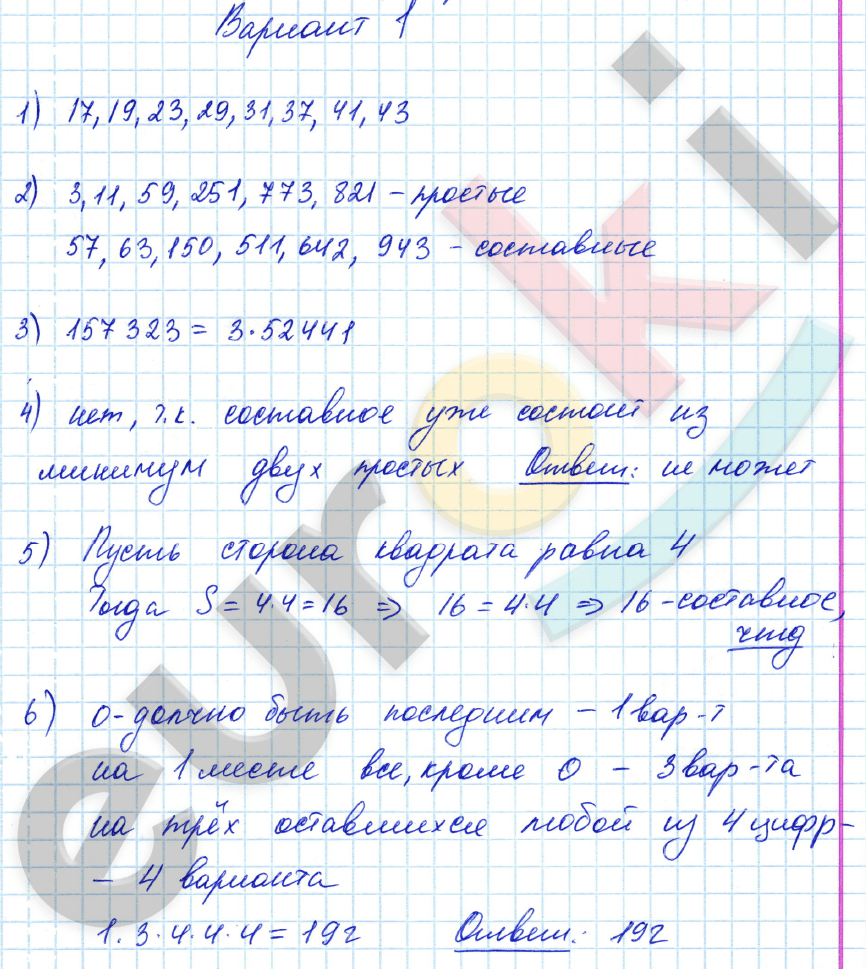 Вариант 1
1) 17, 19, 23, 29, 31, 37, 41, 43
2) 3, 11, 59, 251, 773, 821 – простые
57, 63, 150, 511, 642, 943 – составные
3) 157323 = 3·52441
4) нет, т.к. составное уже состоит из
минимум двух простых Ответ: не может
5) Пусть сторона квадрата равна 4
Тогда S = 4·4 = 16 ⇒ 16 = 4·4 ⇒ 16 – составное,
чтд
6) 0 – должно быть последним – 1 вар-т
на 1 месте все, кроме 0 – 3 вар-та
на трёх оставшихся любой из 4 цифр –
– 4 варианта
1·3·4·4·4 = 192 Ответ: 192
euroki